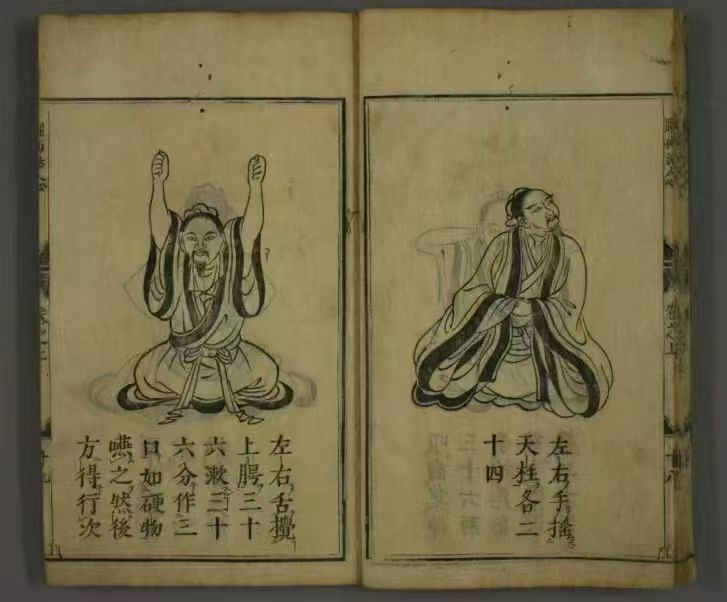 左右手搖
天柱各二
十四
十八
左右舌攪
上腭三十
六漱三十
六分作三
口如硬物
嚥之然後
方得行次
十九